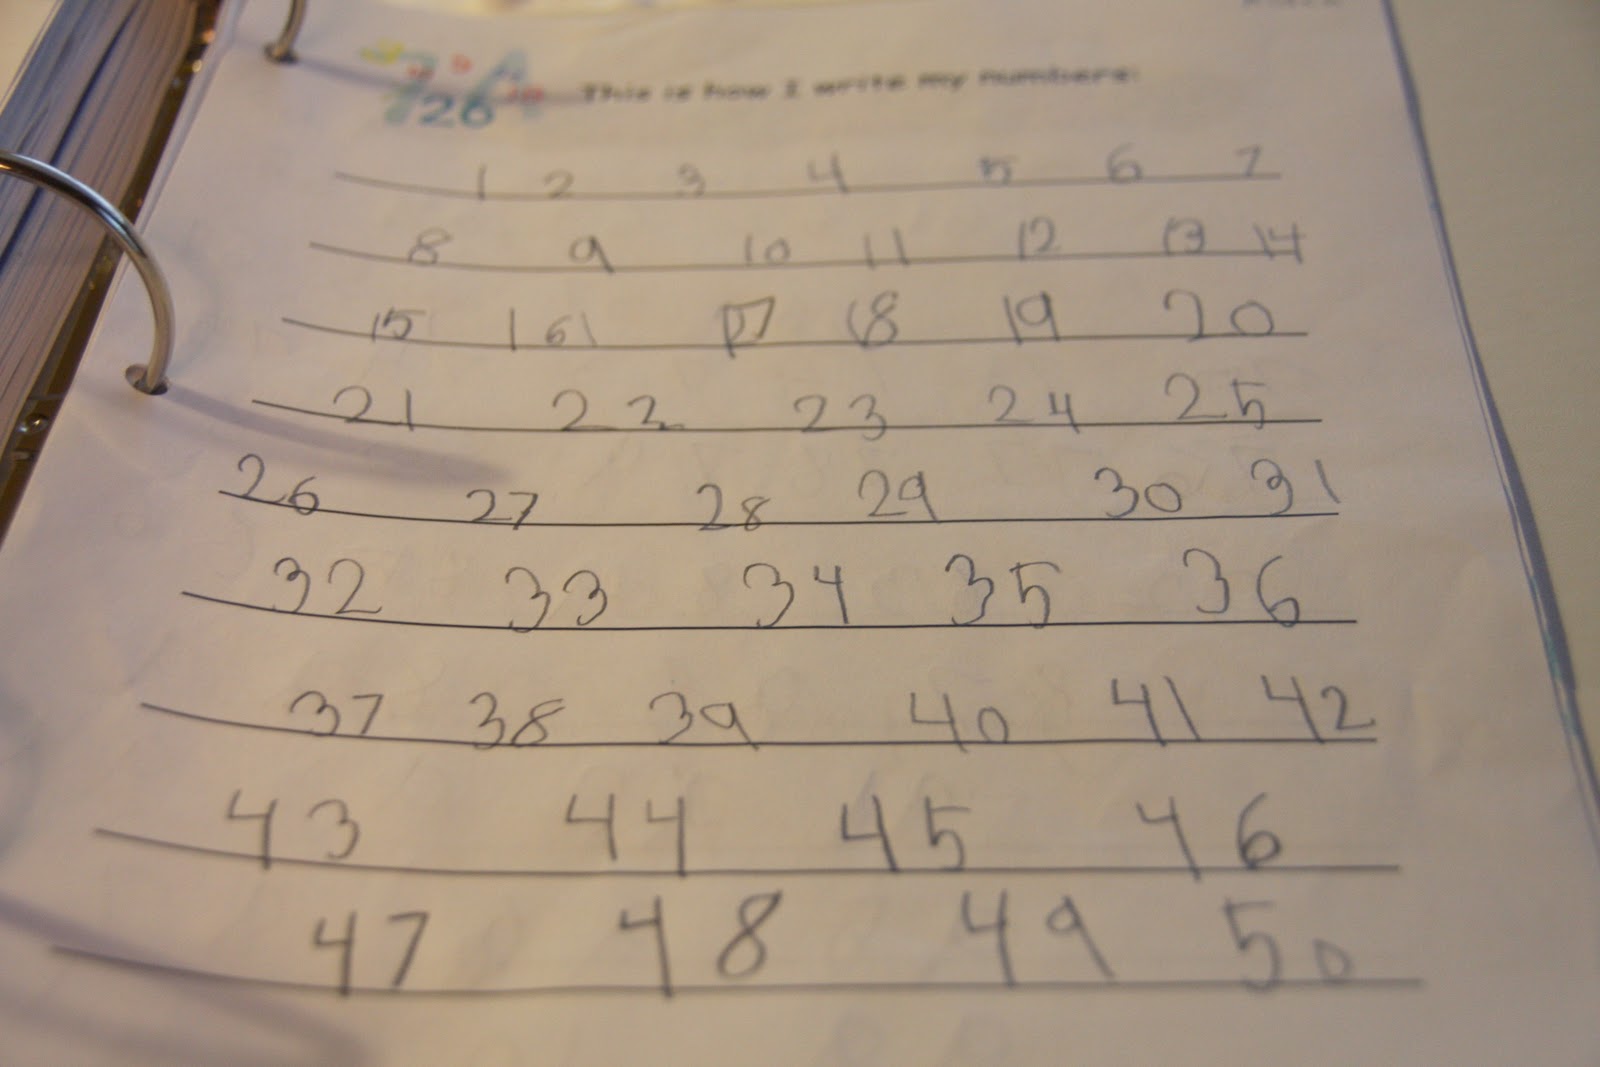 26
This is how I write my numbers:
1 2 3 4 5 6 7
8 9 10 11 12 13 14
15 161 17 18 19 20
21 22 23 24 25
26 27 28 29 30 31
32 33 34 35 36
37 38 39 40 41 42
43 44 45 46
47 48 49 50